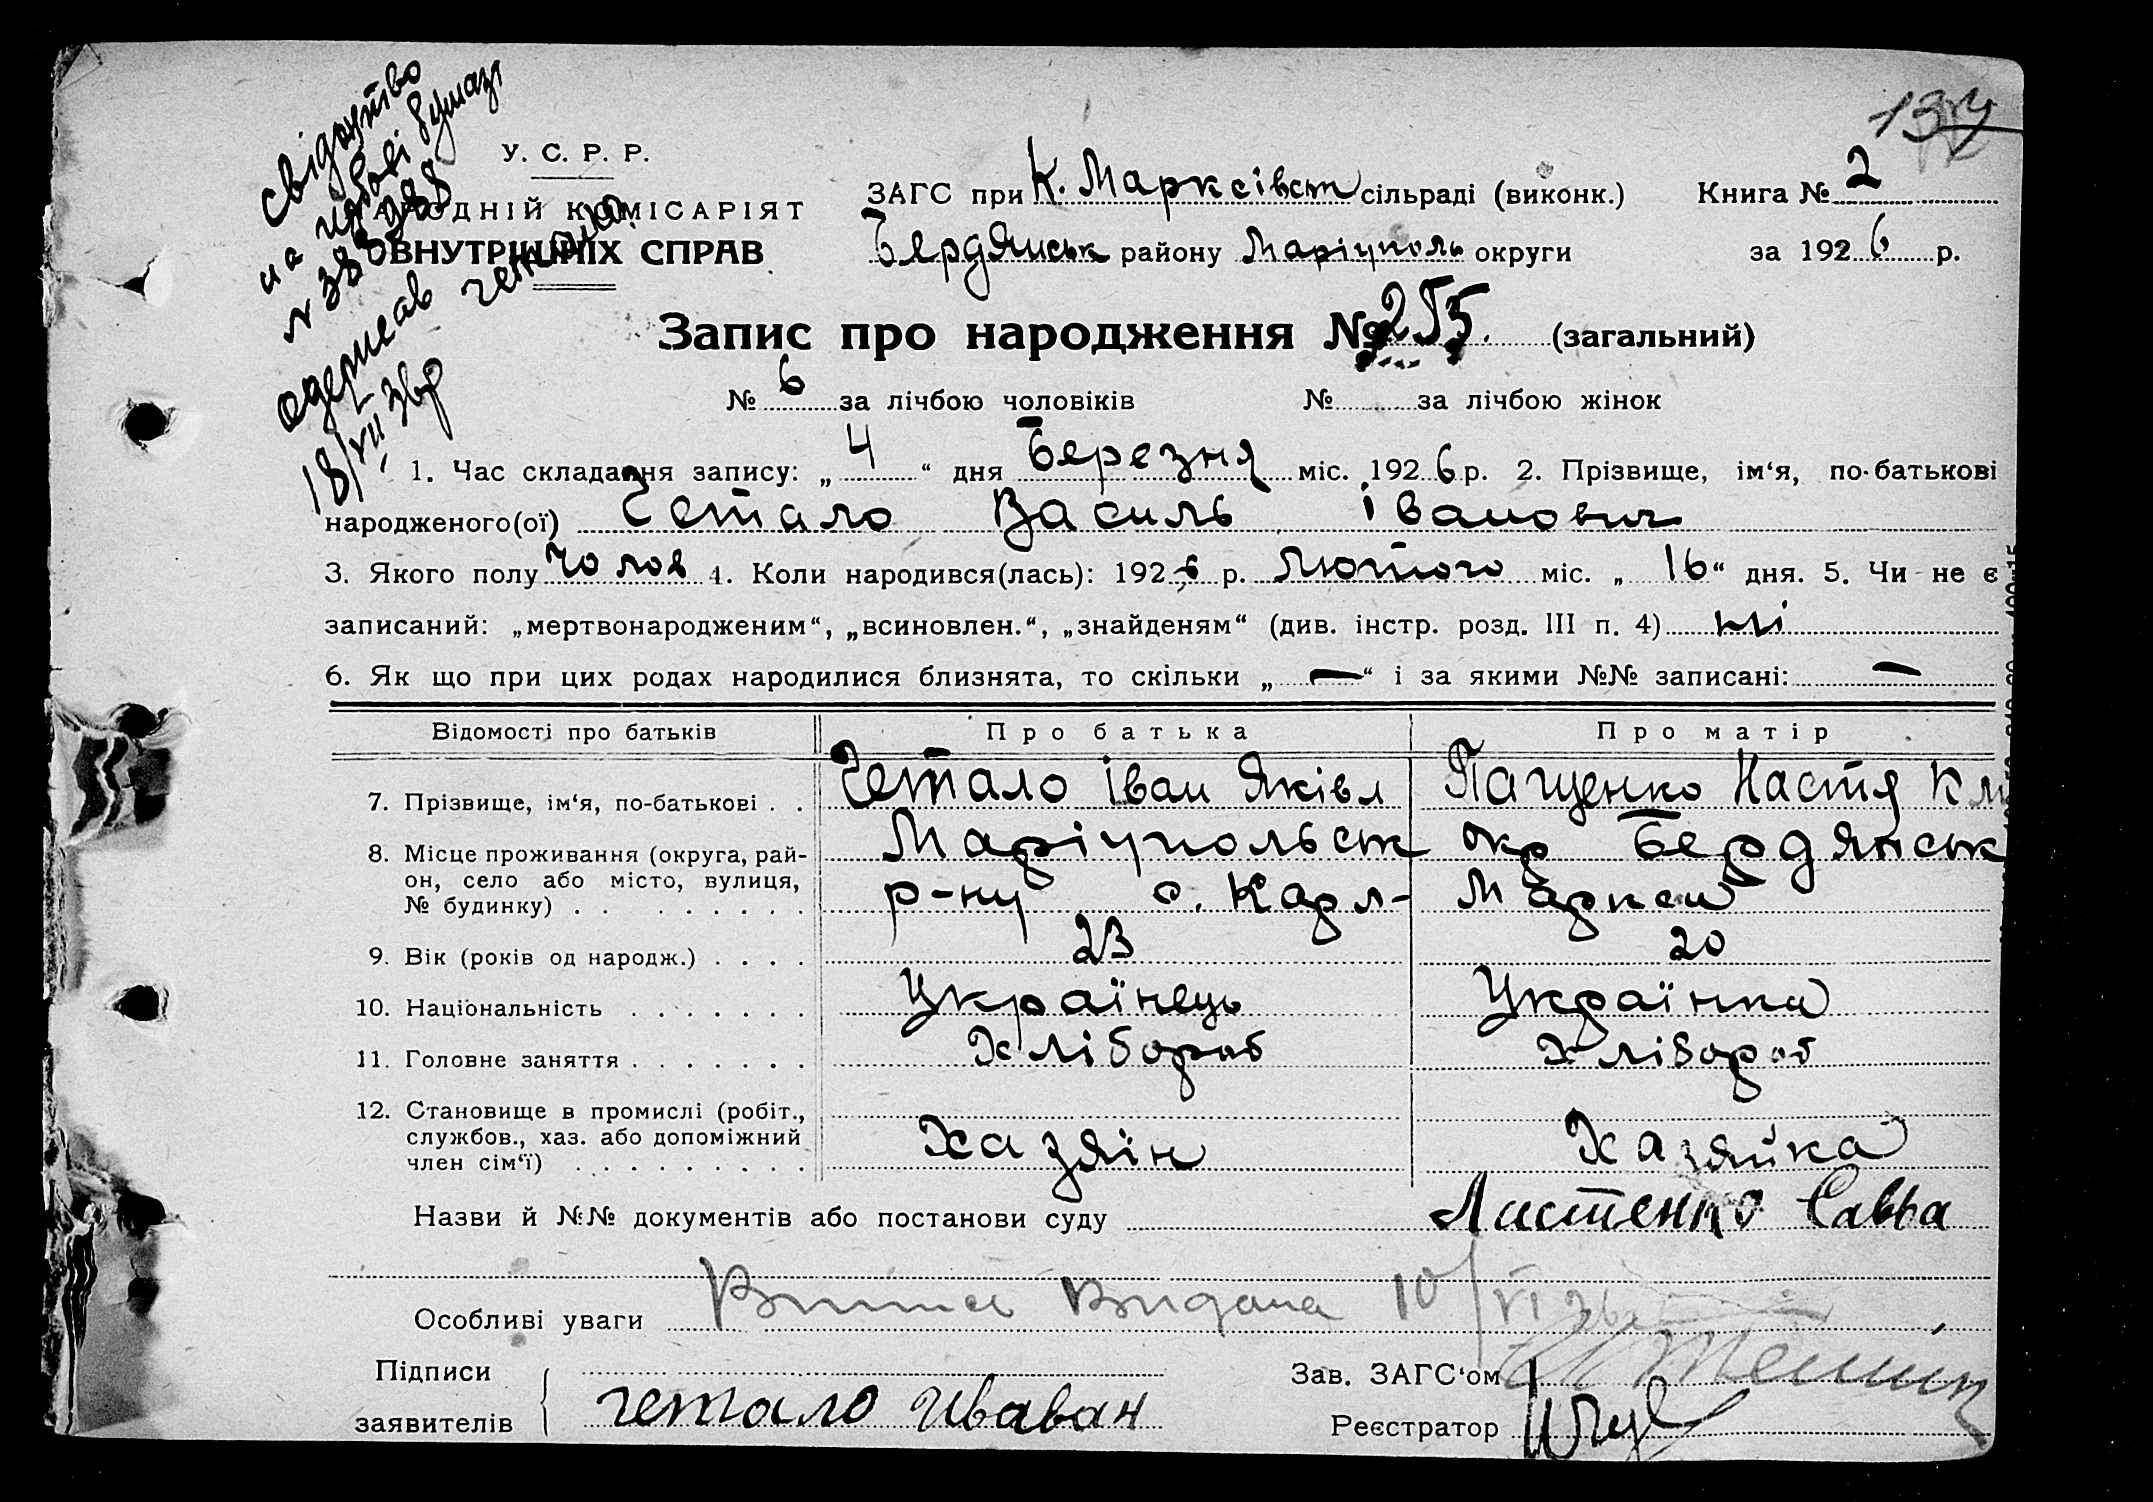 свідоцтво
на гербові бумазі
одержав гетало
18/VII 36р
134
У. С. Р. Р.
НАРОДНІЙ КОМІСАРІЯТ
ВНУТРІШНІХ СПРАВ
ЗАГС при К. Марксівськ сільраді (виконк.) Книга № 2
Бердянськ району Маріуполь округи за 1926 р.
Запис про народження № 255 (загальний)
№ 6 за лічбою чоловіків № за лічбою жінок
1. Час складання запису: „4“ дня Березня міс. 1926 р. 2. Прізвище, ім‘я, по-батькові
народженого(ої) Гетало Василь Іванович
3. Якого полу Чолов 4. Коли народився(лась): 1926 р. Лютого міс. „16“ дня. 5. Чи не є
записаний: „мертвонародженим“, „всиновлен.“, „знайденям“ (див. інстр. розд. III п. 4) ні
6. Як що при цих родах народилися близнята, то скільки „—“ і за якими №№ записані: —
Відомості про батьків Про батька Про матір
7. Прізвище, ім‘я, по-батькові . . Гетало Іван Яківл Пащенко Настя Кли
8. Місце проживання (округа, рай- Маріупольськ окр Бердянськ
он, село або місто, вулиця,
№ будинку) . . . . . . . . . р-ну с. Карл- Маркса
9. Вік (років од народж.) . . . . 23 20
10. Національність . . . . . . . Українець Українка
11. Головне заняття . . . . . . . Хлібороб Хлібороб
12. Становище в промислі (робіт.,
службов., хаз. або допоміжний
член сім‘ї) . . . . . . . . . Хазяїн Хазяйка
Назви й №№ документів або постанови суду Листенко Савва
Особливі уваги Випись Видана 10/VI 36
Підписи
заявителів гетало Иваван
Зав. ЗАГС‘ом
Реєстратор